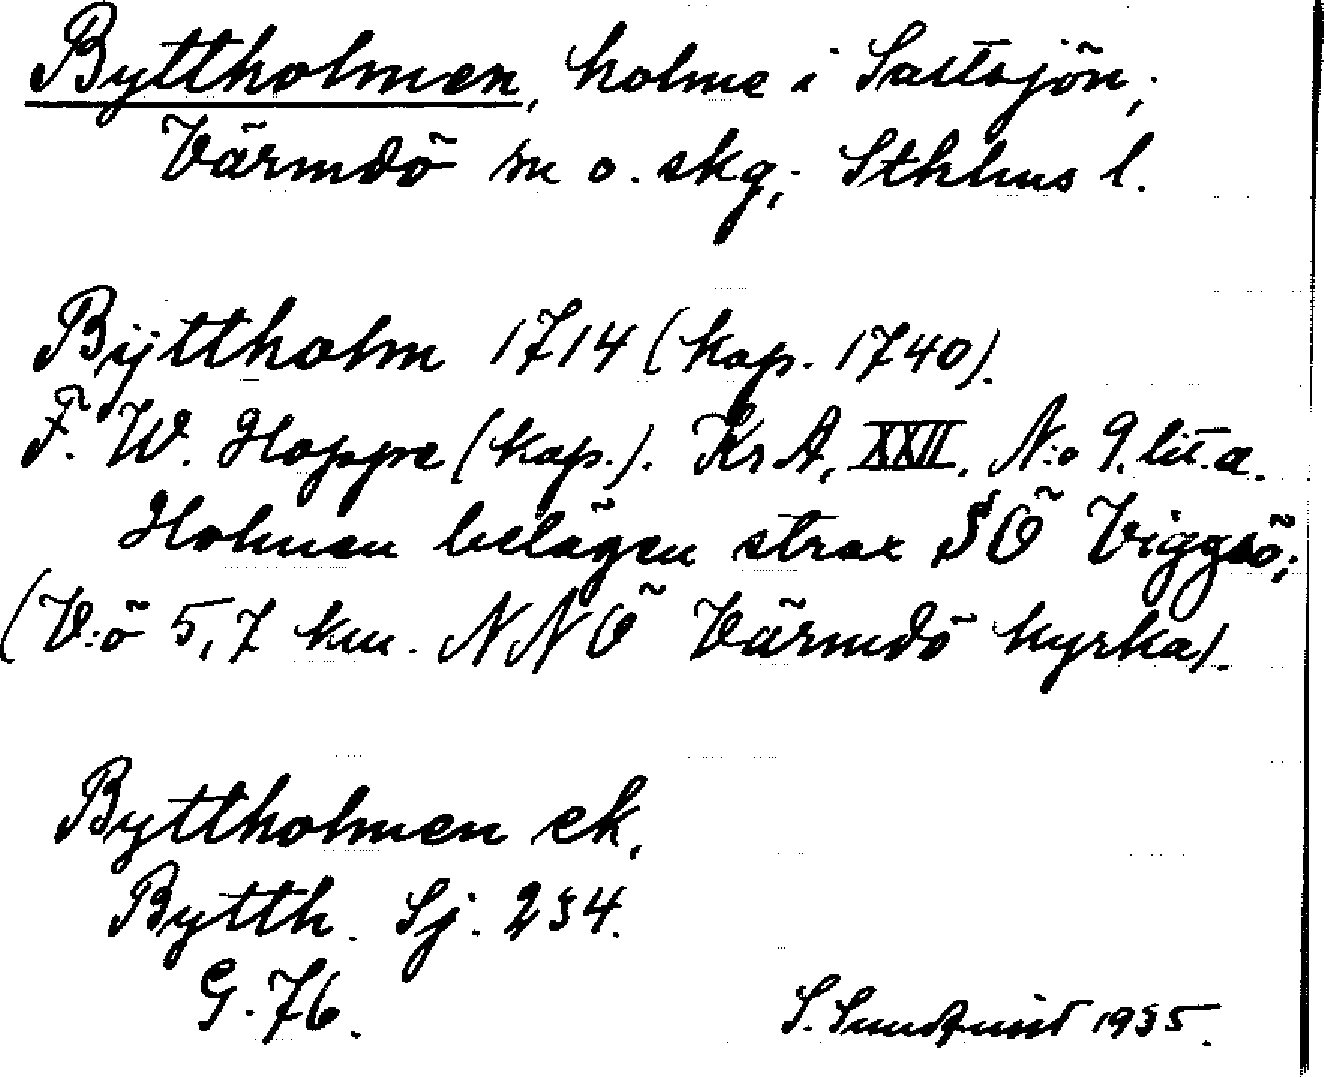 Byttholmen, holme i Saltsjön,
Värmdö sn o. skg, Sthlms l.
Bÿttholm 1714 (kop. 1740).
F. W. Hoppe (kop.). KrA, XXII. N:o 9. lit. a.
Holmen belägen strax SÖ Viggsö;
(V:ö 5,7 km. NNÖ Värmdö kyrka).
Byttholmen ek,
Bytth. Sj. 234.
G. 76.
S. Sundqvist 1935.